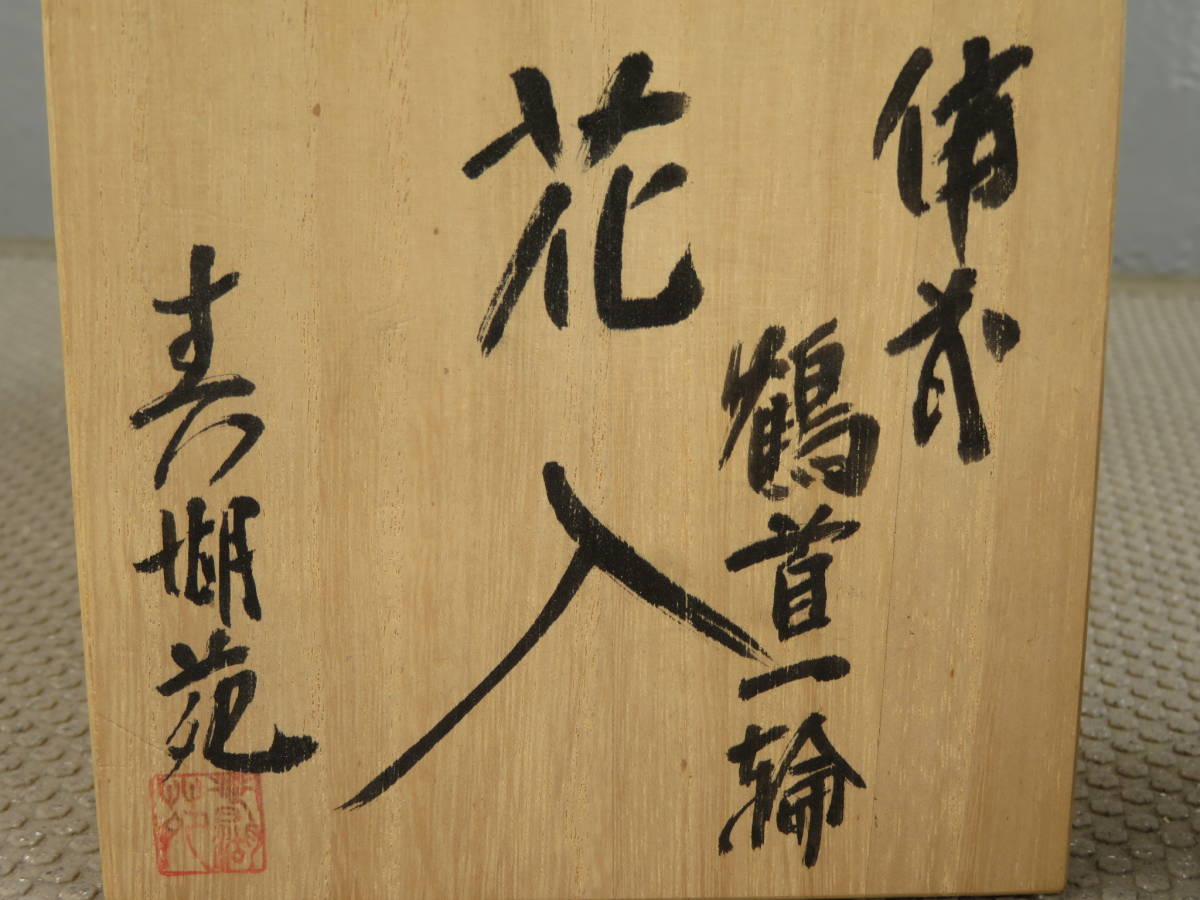 備前
鶴首一輪
花入
湖苑